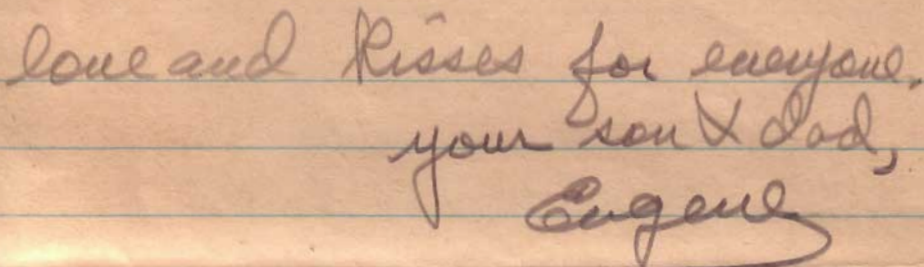 love and kisses for everyone.
your son & dad,
Eugene